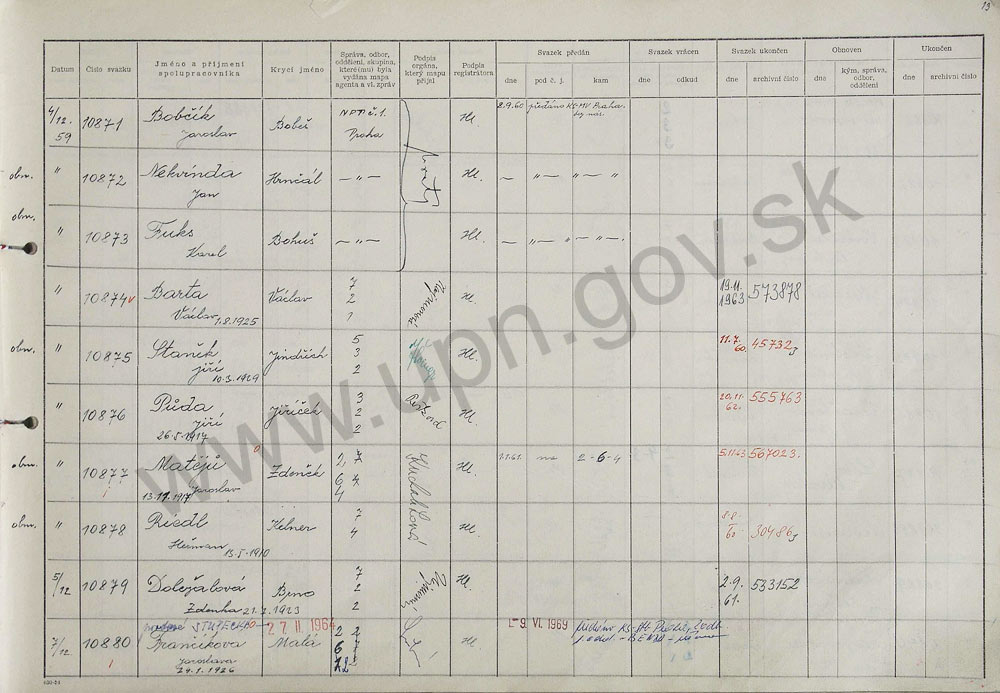 13
Datum
Číslo svazku
Jméno a příjmení
spolupracovníka
Krycí jméno
Správa, odbor,
oddělení, skupina,
které(mu) byla
vydána mapa
agenta a vl. zpráv
Podpis
orgána,
který mapu
přijel
Podpis
registrátora
Svazek předán
dne
pod č. j.
kam
Svazek vrácen
dne
odkud
Svazek ukončen
dne
archivní číslo
Obnoven
dne
kým, správa,
odbor,
oddělení
Ukončen
dne
archivní číslo
4/12. 59
10871
Bobčík
Jaroslav
Bobeš
Praha
Hl.
2.9.60 předáno KS-MV Praha.
obn.
" 10872
Nekvinda
Jan
Hrnčál
— " —
Hl.
— " — " — " — "
obn.
" 10873
Fuks
Karel
Bohuš
— " —
Hl.
— " — " — " —
" 10874 v
Barta
Václav 1.8.1925
Václav
7
2
1
Hl.
19.11.
1963 573878
obn.
" 10875
Staněk
Jiří
10.3.1929
Jindřich
5
3
2
Hl.
11.7.
60. 45732
" 10876
Půda
Jiří
26.5.1917
Jiříček
3
2
2
Hl.
20.11.
62. 555763
obn.
" 10877
Matějů
Jaroslav
13.11.1917
Zdeněk
Hl.
1.1.61. na 2-6-4
567023.
obn.
" 10878
Riedl
Heřman 13.5.1910
Kelner
7
4
Hl.
8.8.
60 30486
5/12 10879
Doležalová
Zdenka 21.2.1923
Brno
7
2
2
Hl.
2.9.
61. 533152
27 II 1964
7/12. 10880
Frančíkova
Jaroslava
24.1.1926
Malá
-9. VI. 1969
www.upn.gov.sk